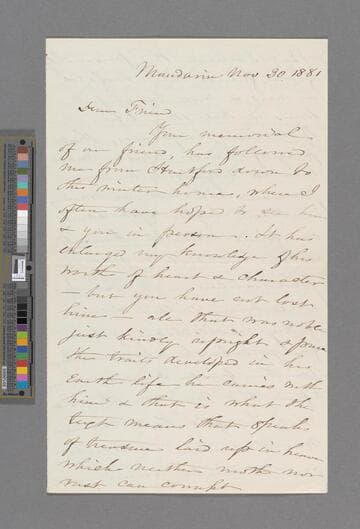 Mandarin Nov 30 1881
Dear Friend
Your memorial
of our friend, has followed
me from Hartford down to
this winter home, where I
often have hoped to see him
& you in person. It has
enlarged my knowledge of his
worth of heart & character
— but you have not lost
him — all that was noble
just kindly upright & pure
the traits developed in his
Earth life he carries with
him & that is what the
text means that speaks
of treasure laid up in heaven
which neither moth nor
rust can corrupt